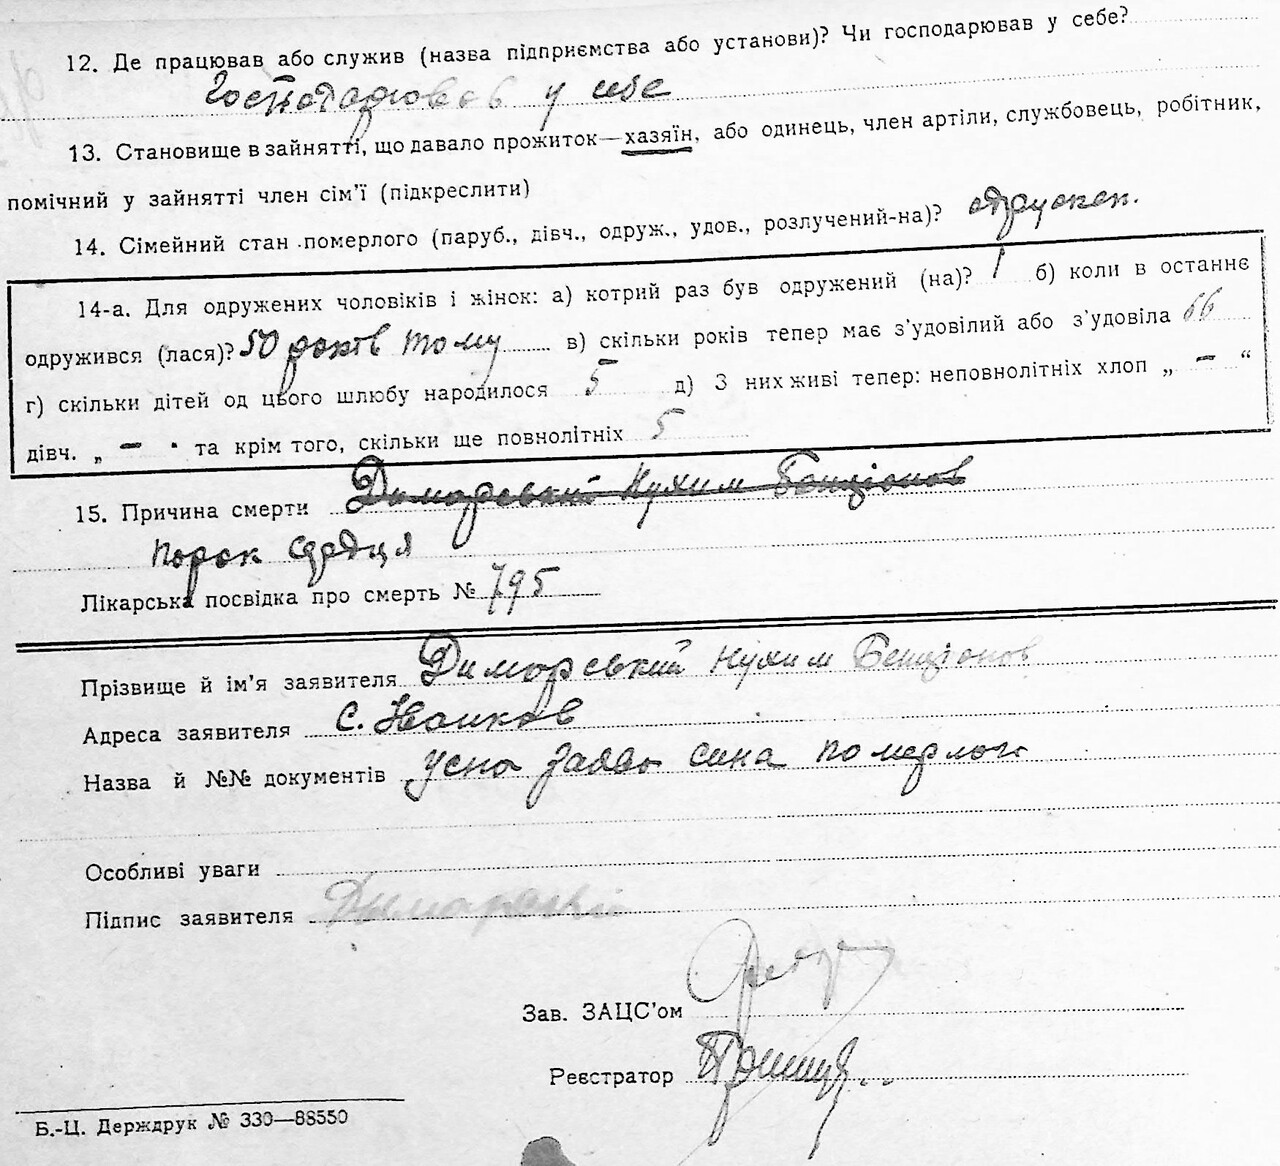 12. Де працював або служив (назва підприємства або установи)? Чи господарював у себе?
Господарював у себе
13. Становище в зайнятті, що давало прожиток—хазяїн, або одинець, член артіли, службовець, робітник,
помічний у зайнятті член сім’ї (підкреслити)
14. Сімейний стан померлого (паруб., дівч., одруж., удов., розлучений-на)? одружен.
14-а. Для одружених чоловіків і жінок: а) котрий раз був одружений (на)? 1 б) коли в останнє
одружився (лася)? 50 років тому в) скільки років тепер має з’удовілий або з’удовіла 66
г) скільки дітей од цього шлюбу народилося 5 д) З них живі тепер: неповнолітніх хлоп „ — “
дівч. „ — “ та крім того, скільки ще повнолітніх 5
15. Причина смерти Диморський Нухим Бенціонов
порок сердця
Лікарська посвідка про смерть № 795
Прізвище й ім’я заявителя Диморський Нухим Бенціонов
Адреса заявителя с.
Назва й №№ документів усна заява сина померлого
Особливі уваги
Підпис заявителя
Зав. ЗАЦС’ом
Реєстратор
Б.-Ц. Держдрук № 330—88550